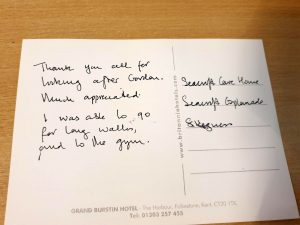 Thank you all for
looking after Gordon.
Much appreciated.
I was able to go
for long walks,
and to the gym.
www.britanniahotels.com
Seacroft Care Home
Seacroft Esplanade
Skegness
GRAND BURSTIN HOTEL - The Harbour, Folkestone, Kent CT20 1TX
Tel: 01303 257 455